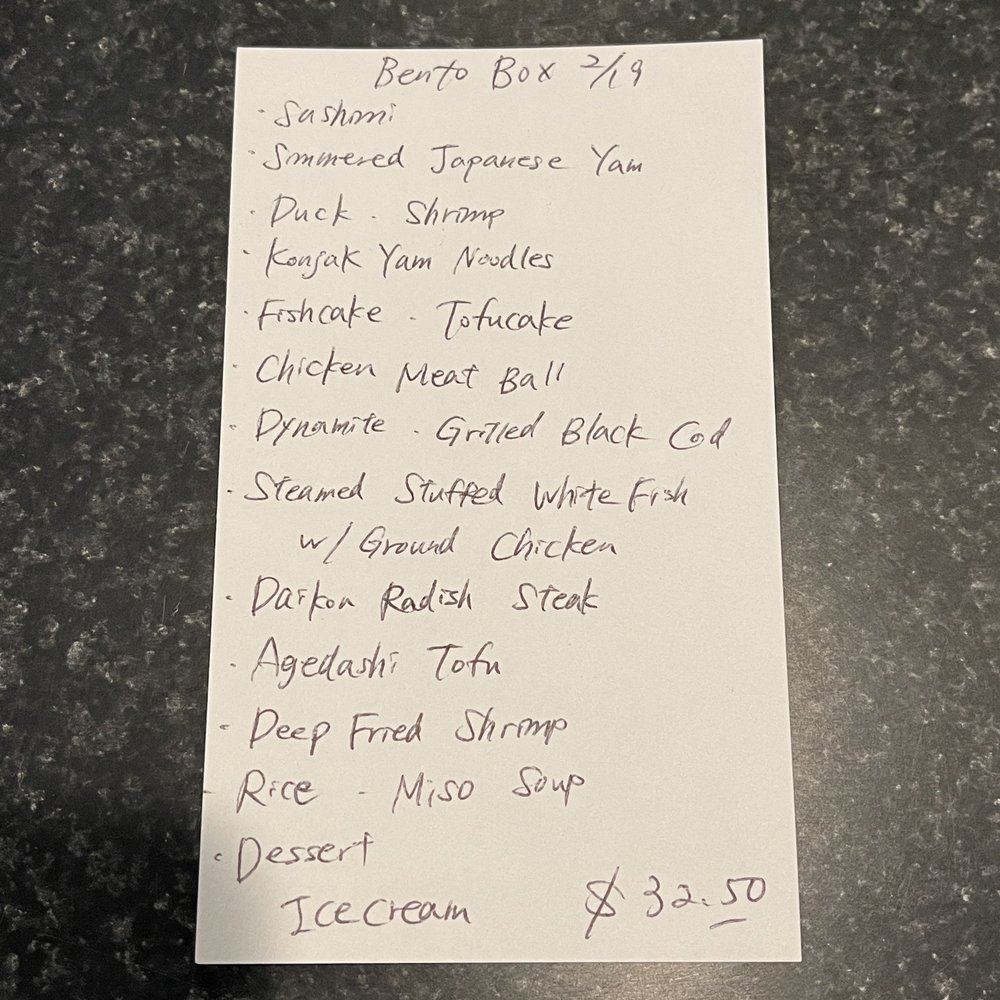 Bento Box 2/19
· Sashimi
· Simmered Japanese Yam
· Duck · Shrimp
· Konjak Yam Noodles
· Fishcake · Tofucake
· Chicken Meat Ball
· Dynamite · Grilled Black Cod
· Steamed Stuffed White Fish
w/ Ground Chicken
· Daikon Radish Steak
· Agedashi Tofu
· Deep Fried Shrimp
· Rice · Miso Soup
· Dessert
Ice Cream $32.50